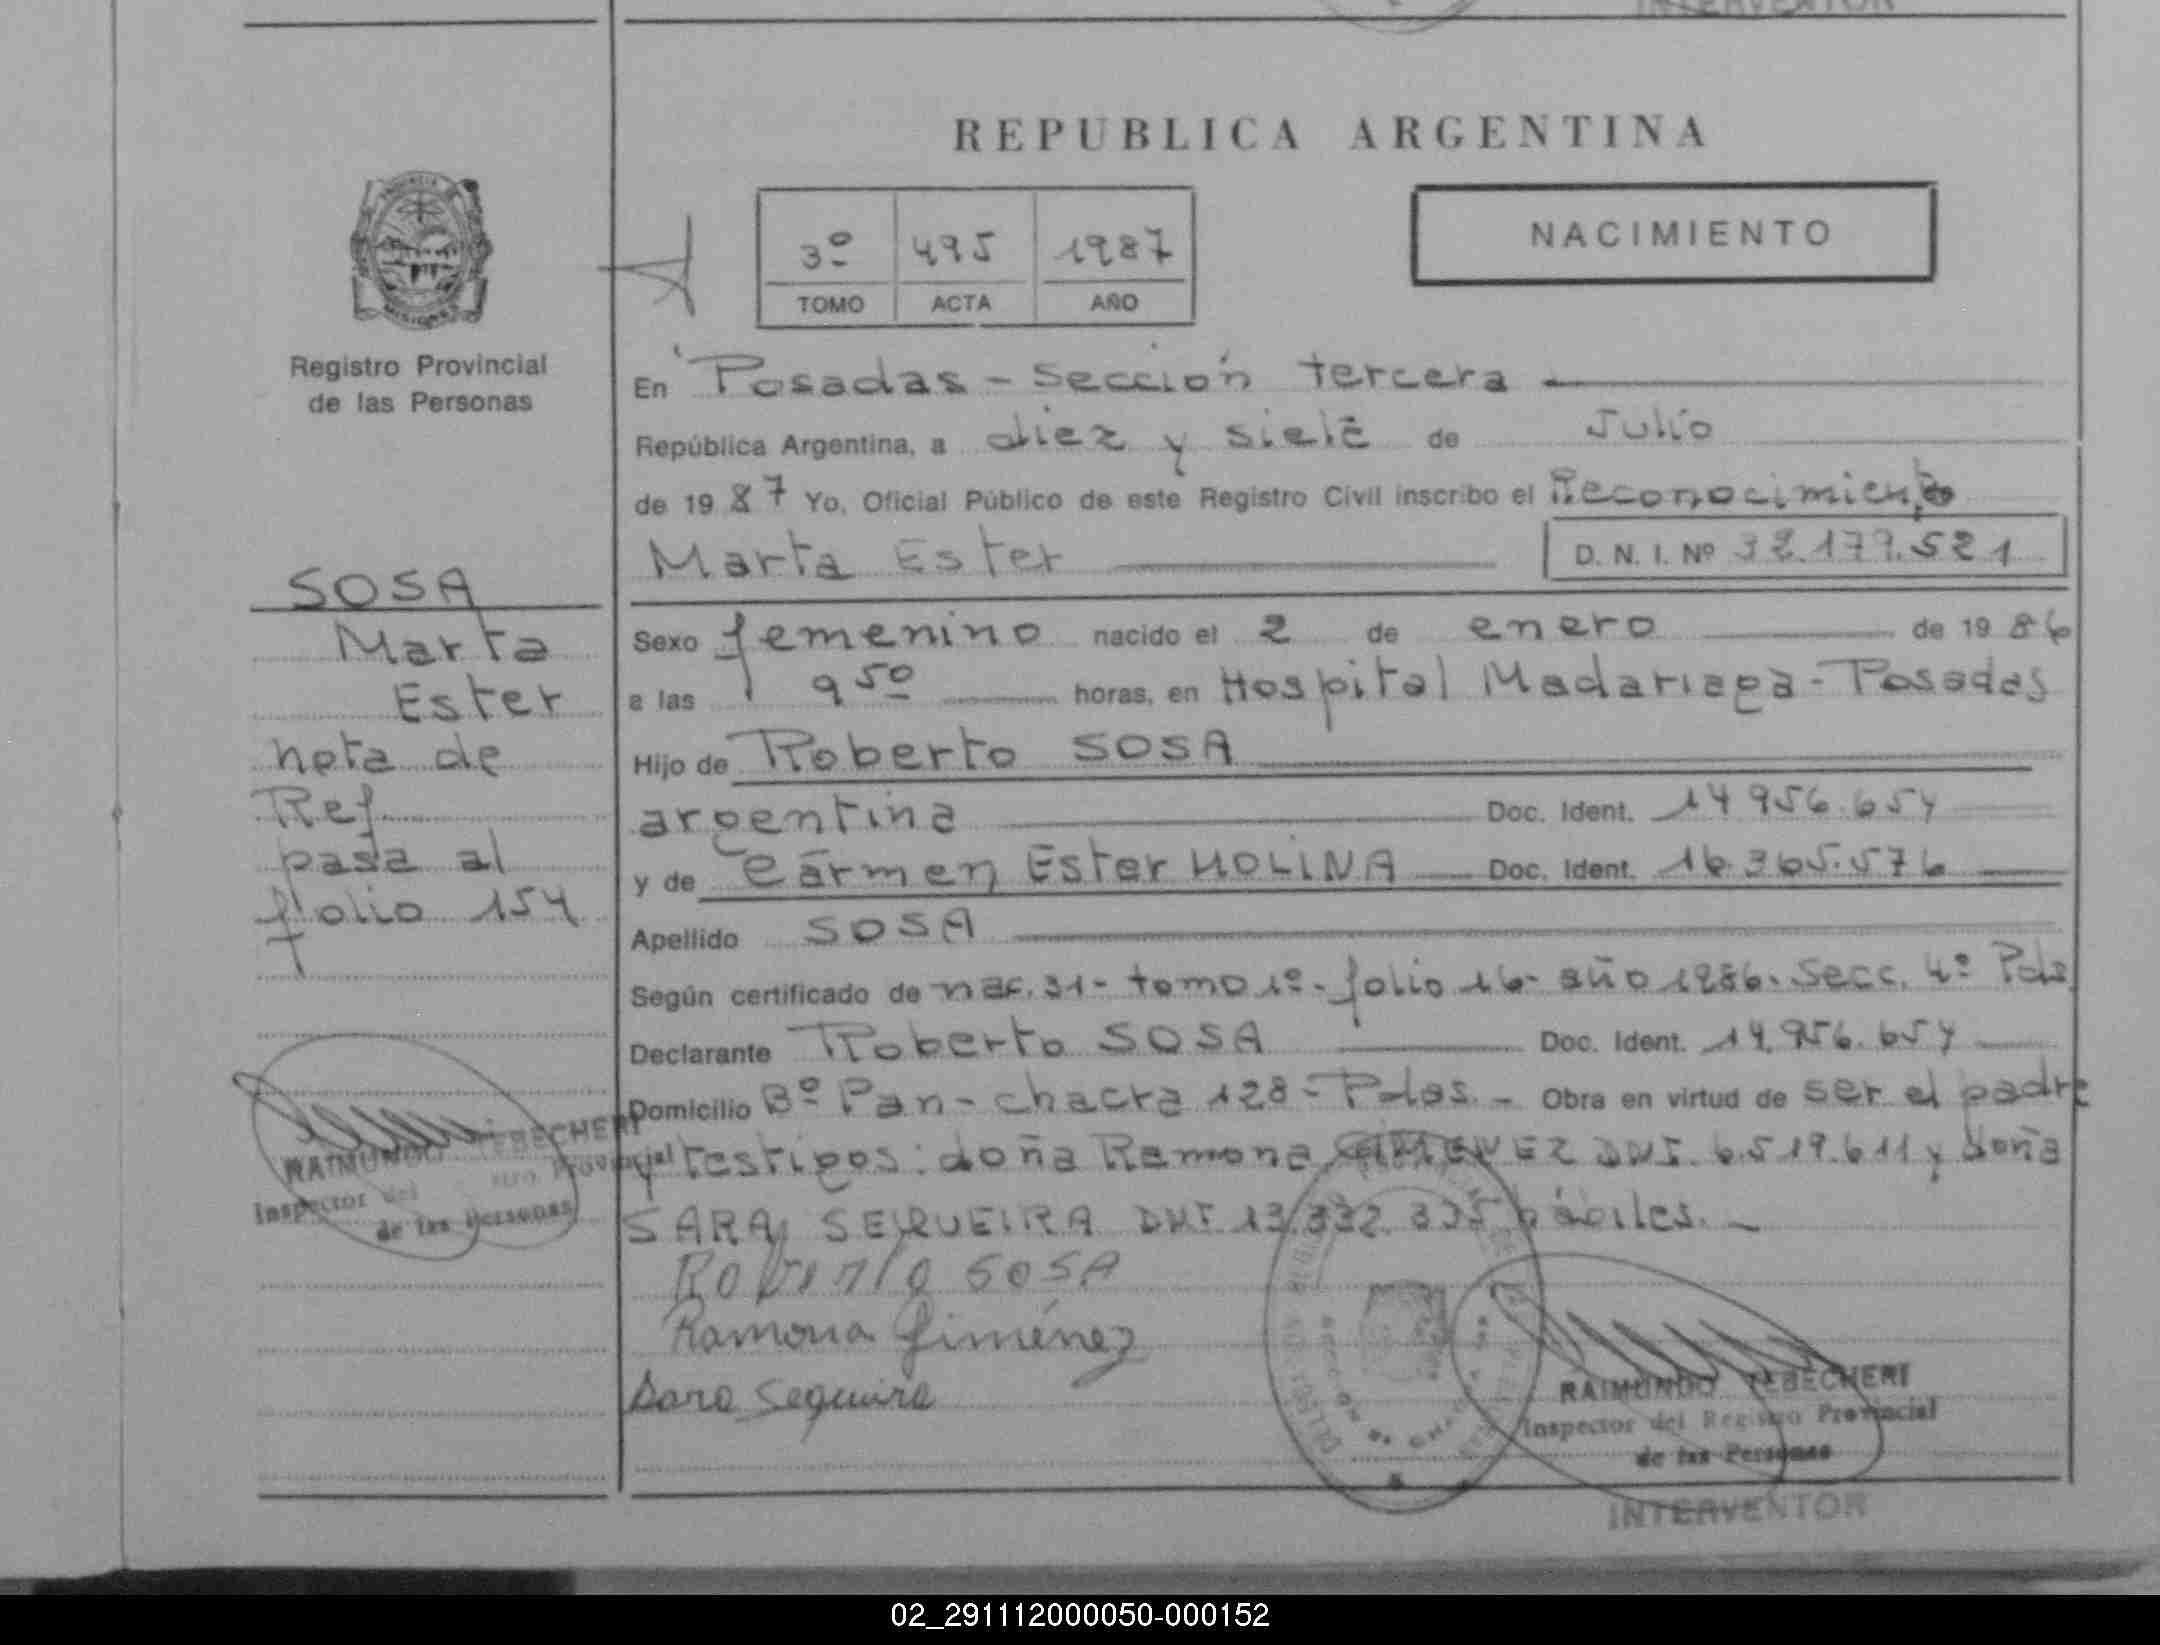 REPUBLICA ARGENTINA
3º 495 1987
TOMO ACTA AÑO
NACIMIENTO
Registro Provincial
de las Personas
SOSA
Marta
Ester
nota de
Ref
pasa al
folio 154
RAIMUNDO TEBECHERI
Inspector del Provincial
de las Personas
En Posadas - sección tercera
República Argentina, a diez y siete de Julio
de 1987 Yo, Oficial Público de este Registro Civil inscribo el Reconocimiento
Marta Ester D. N. I. Nº 32.179.521
Sexo femenino nacido el 2 de enero de 1986
a las 9 50 horas, en Hospital Madariaga - Posadas
Hijo de Roberto SOSA
argentina Doc. Ident. 14.956.654
y de Carmen Ester MOLINA Doc. Ident. 16.365.576
Apellido SOSA
Según certificado de nac. 31 - tomo 1º - folio 16 - año 1986. Secc. 4º Pdas
Declarante Roberto SOSA Doc. Ident. 14.956.654
Domicilio Bº Pan - chacra 128 - Pdas. - Obra en virtud de ser el padre
y testigos: doña Ramona DNI. 6.519.611 y doña
SARA SEQUEIRA DNI 13.332.335 hábiles. -
Roberto SOSA
Ramona Giménez
Sara Sequeira
RAIMUNDO TEBECHERI
Inspector del Registro Provincial
de las Personas
INTERVENTOR
02_291112000050-000152